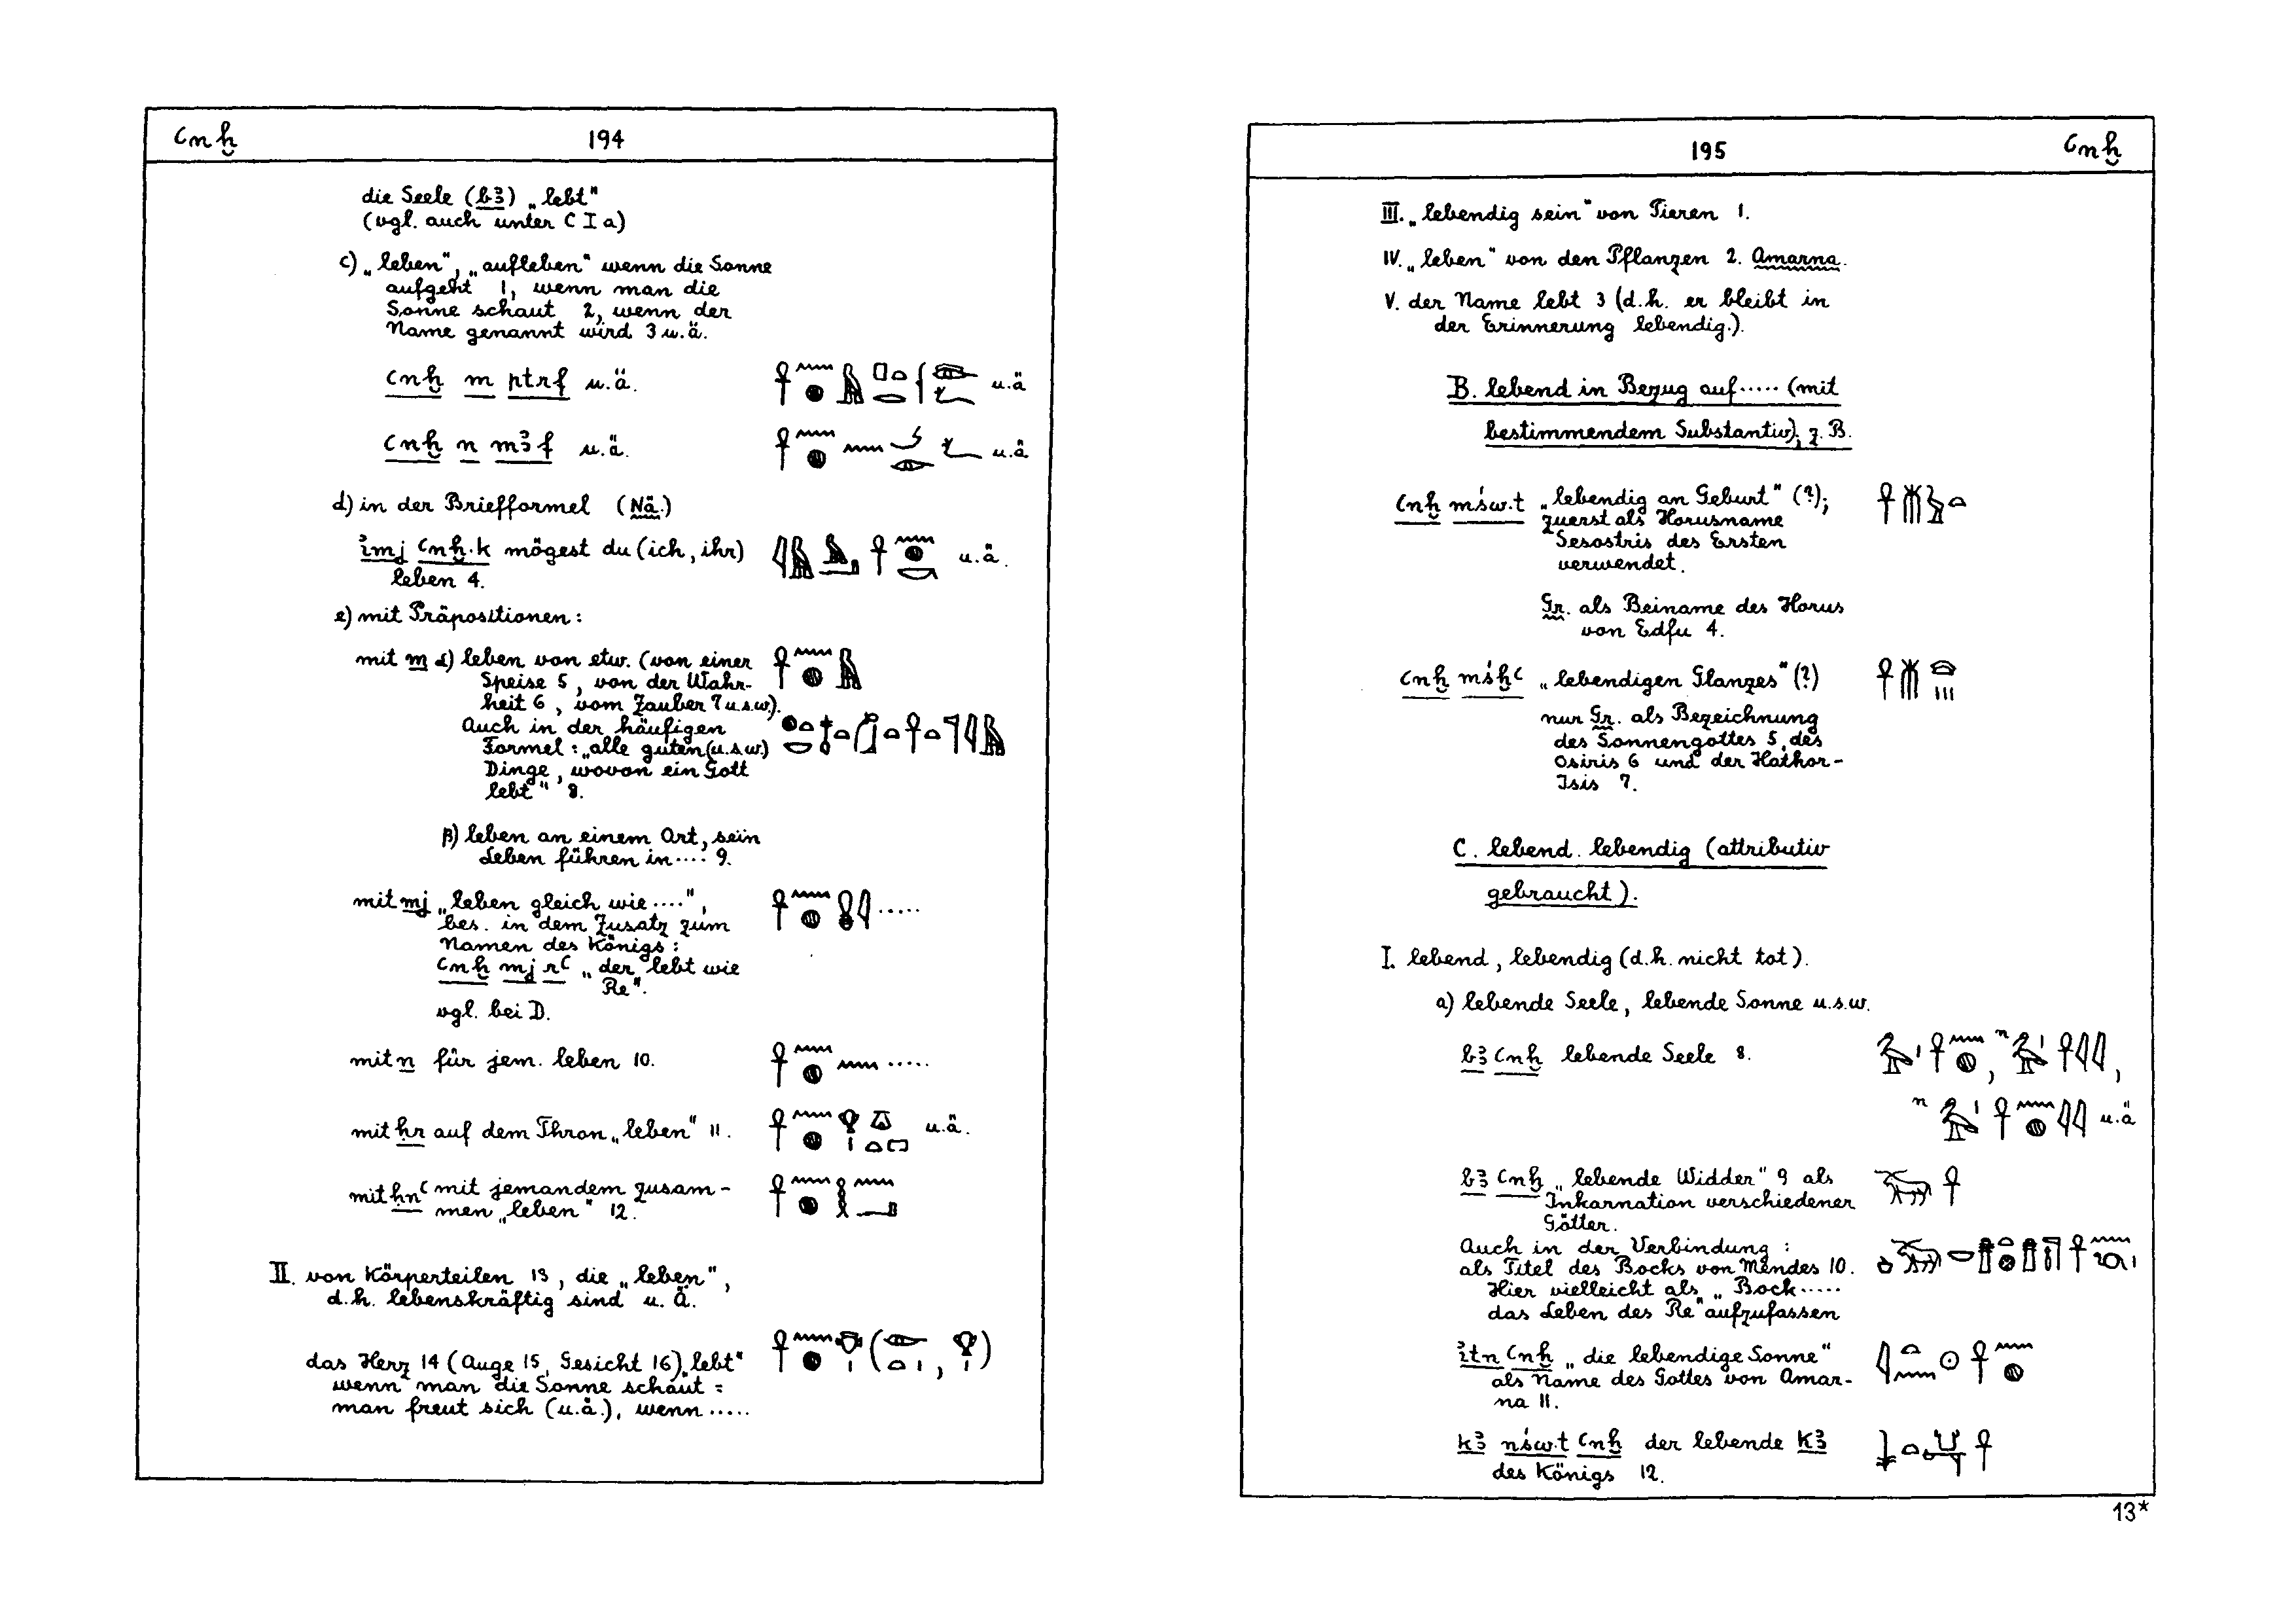 ꜥnḫ
194
die Seele (bꜣ) „lebt"
(vgl. auch unter C I a)
c) „leben", „aufleben" wenn die Sonne
aufgeht 1, wenn man die
Sonne schaut 2, wenn der
Name genannt wird 3 u.ä.
ꜥnḫ m ptrf u.ä. u.ä
ꜥnḫ n mꜣf u.ä. u.ä
d) in der Briefformel (Nä.)
ı͗mj ꜥnḫ.k mögest du (ich, ihr) u.ä.
leben 4.
e) mit Präpositionen:
mit m α) leben von etw. (von einer
Speise 5, von der Wahr-
heit 6, vom Zauber 7 u.s.w.).
Auch in der häufigen
Formel: „alle guten (u.s.w.)
Dinge, wovon ein Gott
lebt" 8.
β) leben an einem Ort, sein
Leben führen in .... 9.
mit mj „leben gleich wie ....", .....
bes. in dem Zusatz zum
Namen des Königs:
ꜥnḫ mj rꜥ „der lebt wie
Re".
vgl. bei D.
mit n für jem. leben 10. .....
mit ḥr auf dem Thron „leben" 11. u.ä.
mit ḥnꜥ mit jemandem zusam-
men „leben" 12.
II. von Körperteilen 13, die „leben",
d.h. lebenskräftig sind u. Ä.
das Herz 14 (Auge 15, Gesicht 16) „lebt"
wenn man die Sonne schaut =
man freut sich (u.ä.), wenn .....
195
ꜥnḫ
III. „lebendig sein" von Tieren 1.
IV. „leben" von den Pflanzen 2. Amarna.
V. der Name lebt 3 (d.h. er bleibt in
der Erinnerung lebendig.).
B. lebend in Bezug auf ..... (mit
bestimmendem Substantiv), z. B.
ꜥnḫ mśw.t „lebendig an Geburt" (?);
zuerst als Horusname
Sesostris des Ersten
verwendet.
Gr. als Beiname des Horus
von Edfu 4.
ꜥnḫ mśḫꜥ „lebendigen Glanzes" (?)
nur Gr. als Bezeichnung
des Sonnengottes 5, des
Osiris 6 und der Hathor-
Isis 7.
C. lebend. lebendig (attributiv
gebraucht).
I. lebend, lebendig (d.h. nicht tot).
a) lebende Seele, lebende Sonne u.s.w.
bꜣ ꜥnḫ lebende Seele 8. , n ,
n u.ä
bꜣ ꜥnḫ „lebende Widder" 9 als
Inkarnation verschiedener
Götter.
Auch in der Verbindung:
als Titel des Bocks von Mendes 10.
Hier vielleicht als „Bock .....
das Leben des Re" aufzufassen
ı͗tn ꜥnḫ „die lebendige Sonne"
als Name des Gottes von Amar-
na 11.
kꜣ nśw.t ꜥnḫ der lebende kꜣ
des Königs 12.
13*